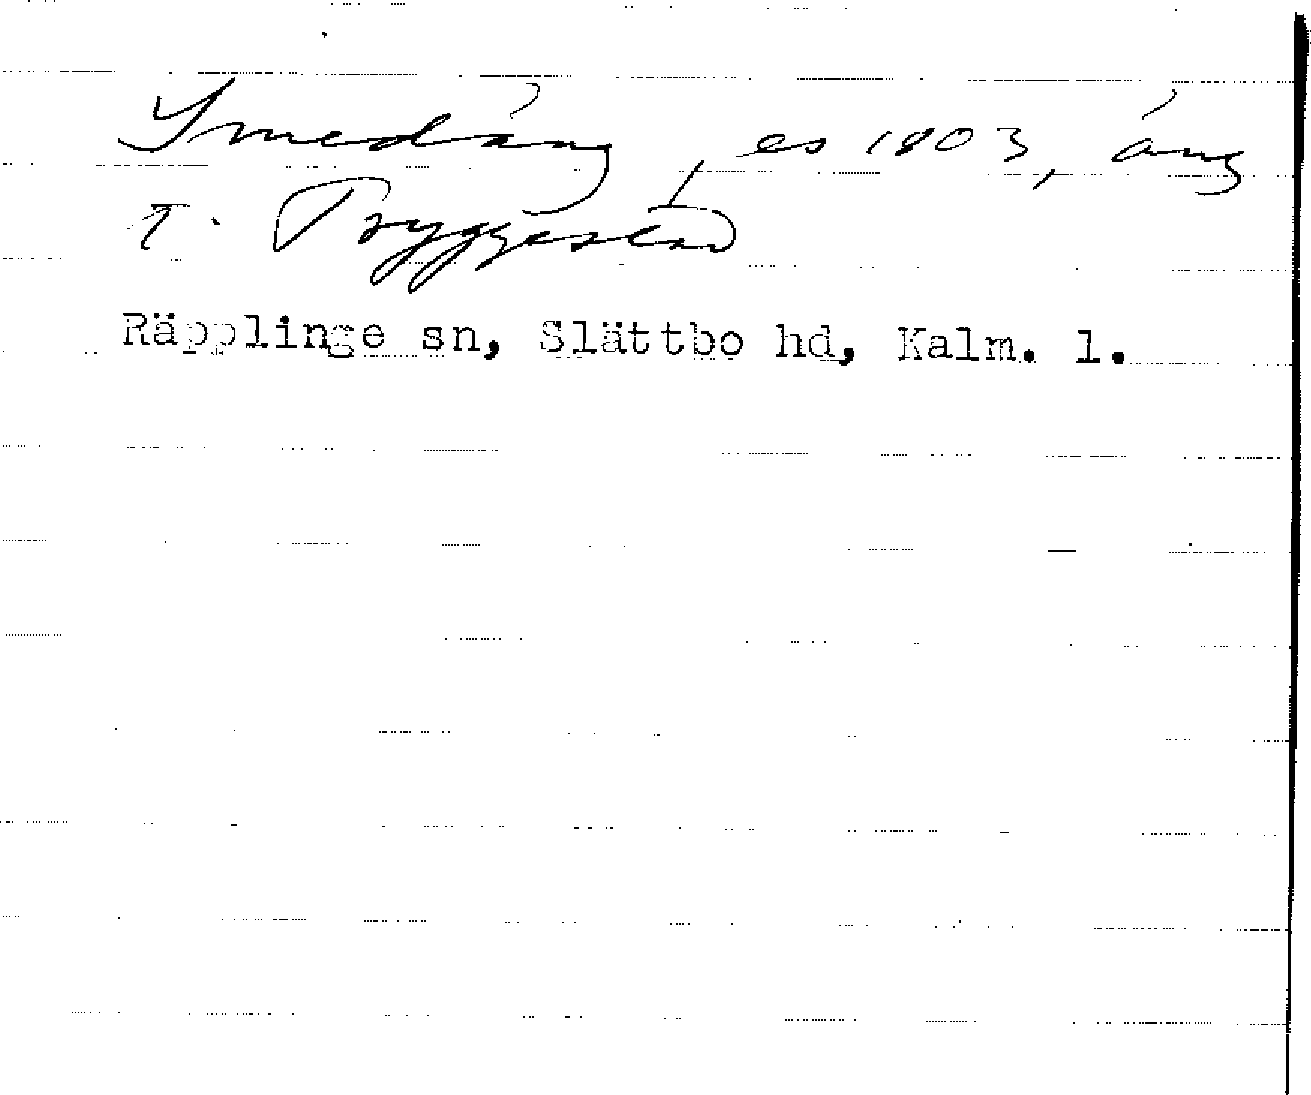 Smedäng, es 1803, äng
t. Pryggestad
Räpplinge sn, Slättbo hd, Kalm. l.